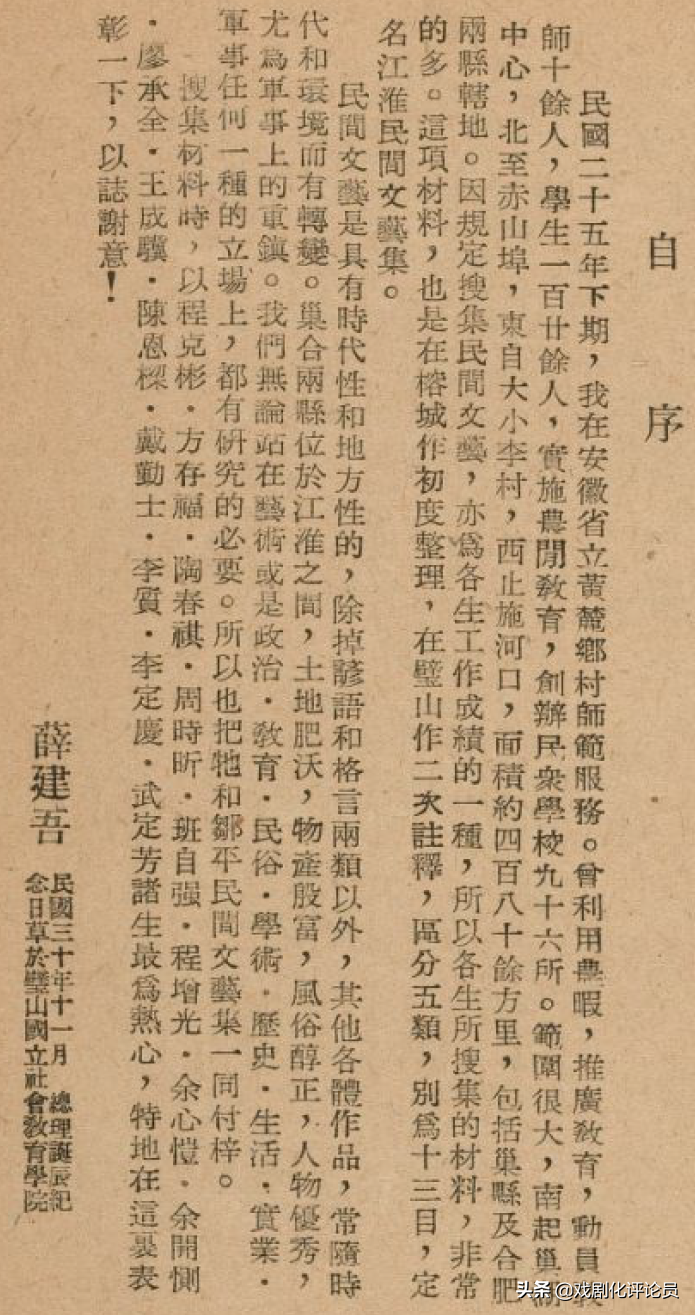 自序
民國二十五年下期，我在安徽省立黃麓鄉村師範服務。曾利用農暇，推廣教育，動員教
師十餘人，學生一百廿餘人，實施農閒教育，創辦民衆學校九十六所。範圍很大，南起巢湖
中心，北至赤山埠，東自大小李村，西止施河口，面積約四百八十餘方里，包括巢縣及合肥
兩縣轄地。因規定搜集民間文藝，亦爲各生工作成績的一種，所以各生所搜集的材料，非常
的多。這項材料，也是在榕城作初度整理，在璧山作二次註釋，區分五類，別爲十三目，定
名江淮民間文藝集。
民間文藝是具有時代性和地方性的，除掉諺語和格言兩類以外，其他各體作品，常隨時
代和環境而有轉變。巢合兩縣位於江淮之間，土地肥沃，物產殷富，風俗醇正，人物優秀，
尤爲軍事上的重鎮。我們無論站在藝術或是政治．教育．民俗．學術．歷史．生活．實業．
軍事任何一種的立場上，都有研究的必要。所以也把牠和鄒平民間文藝集一同付梓。
搜集材料時，以程克彬．方存福．陶春祺．周時昕．班自强．程增光．余心愷．余開惻
．廖承全．王成驥．陳恩樑．戴勤士．李質．李定慶．武定芳諸生最爲熱心，特地在這裏表
彰一下，以誌謝意！
薛建吾
民國三十年十一月　總理誕辰紀
念日草於璧山國立社會教育學院
头条 @戏剧化评论员